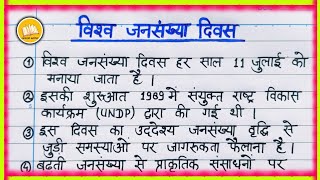 विश्व जनसंख्या दिवस
① विश्व जनसंख्या दिवस हर साल 11 जुलाई को
मनाया जाता है।
② इसकी शुरुआत 1989 में संयुक्त राष्ट्र विकास
कार्यक्रम (UNDP) द्वारा की गई थी।
③ इस दिवस का उद्देश्य जनसंख्या वृद्धि से
जुड़ी समस्याओं पर जागरूकता फैलाना है।
④ बढ़ती जनसंख्या से प्राकृतिक संसाधनों पर